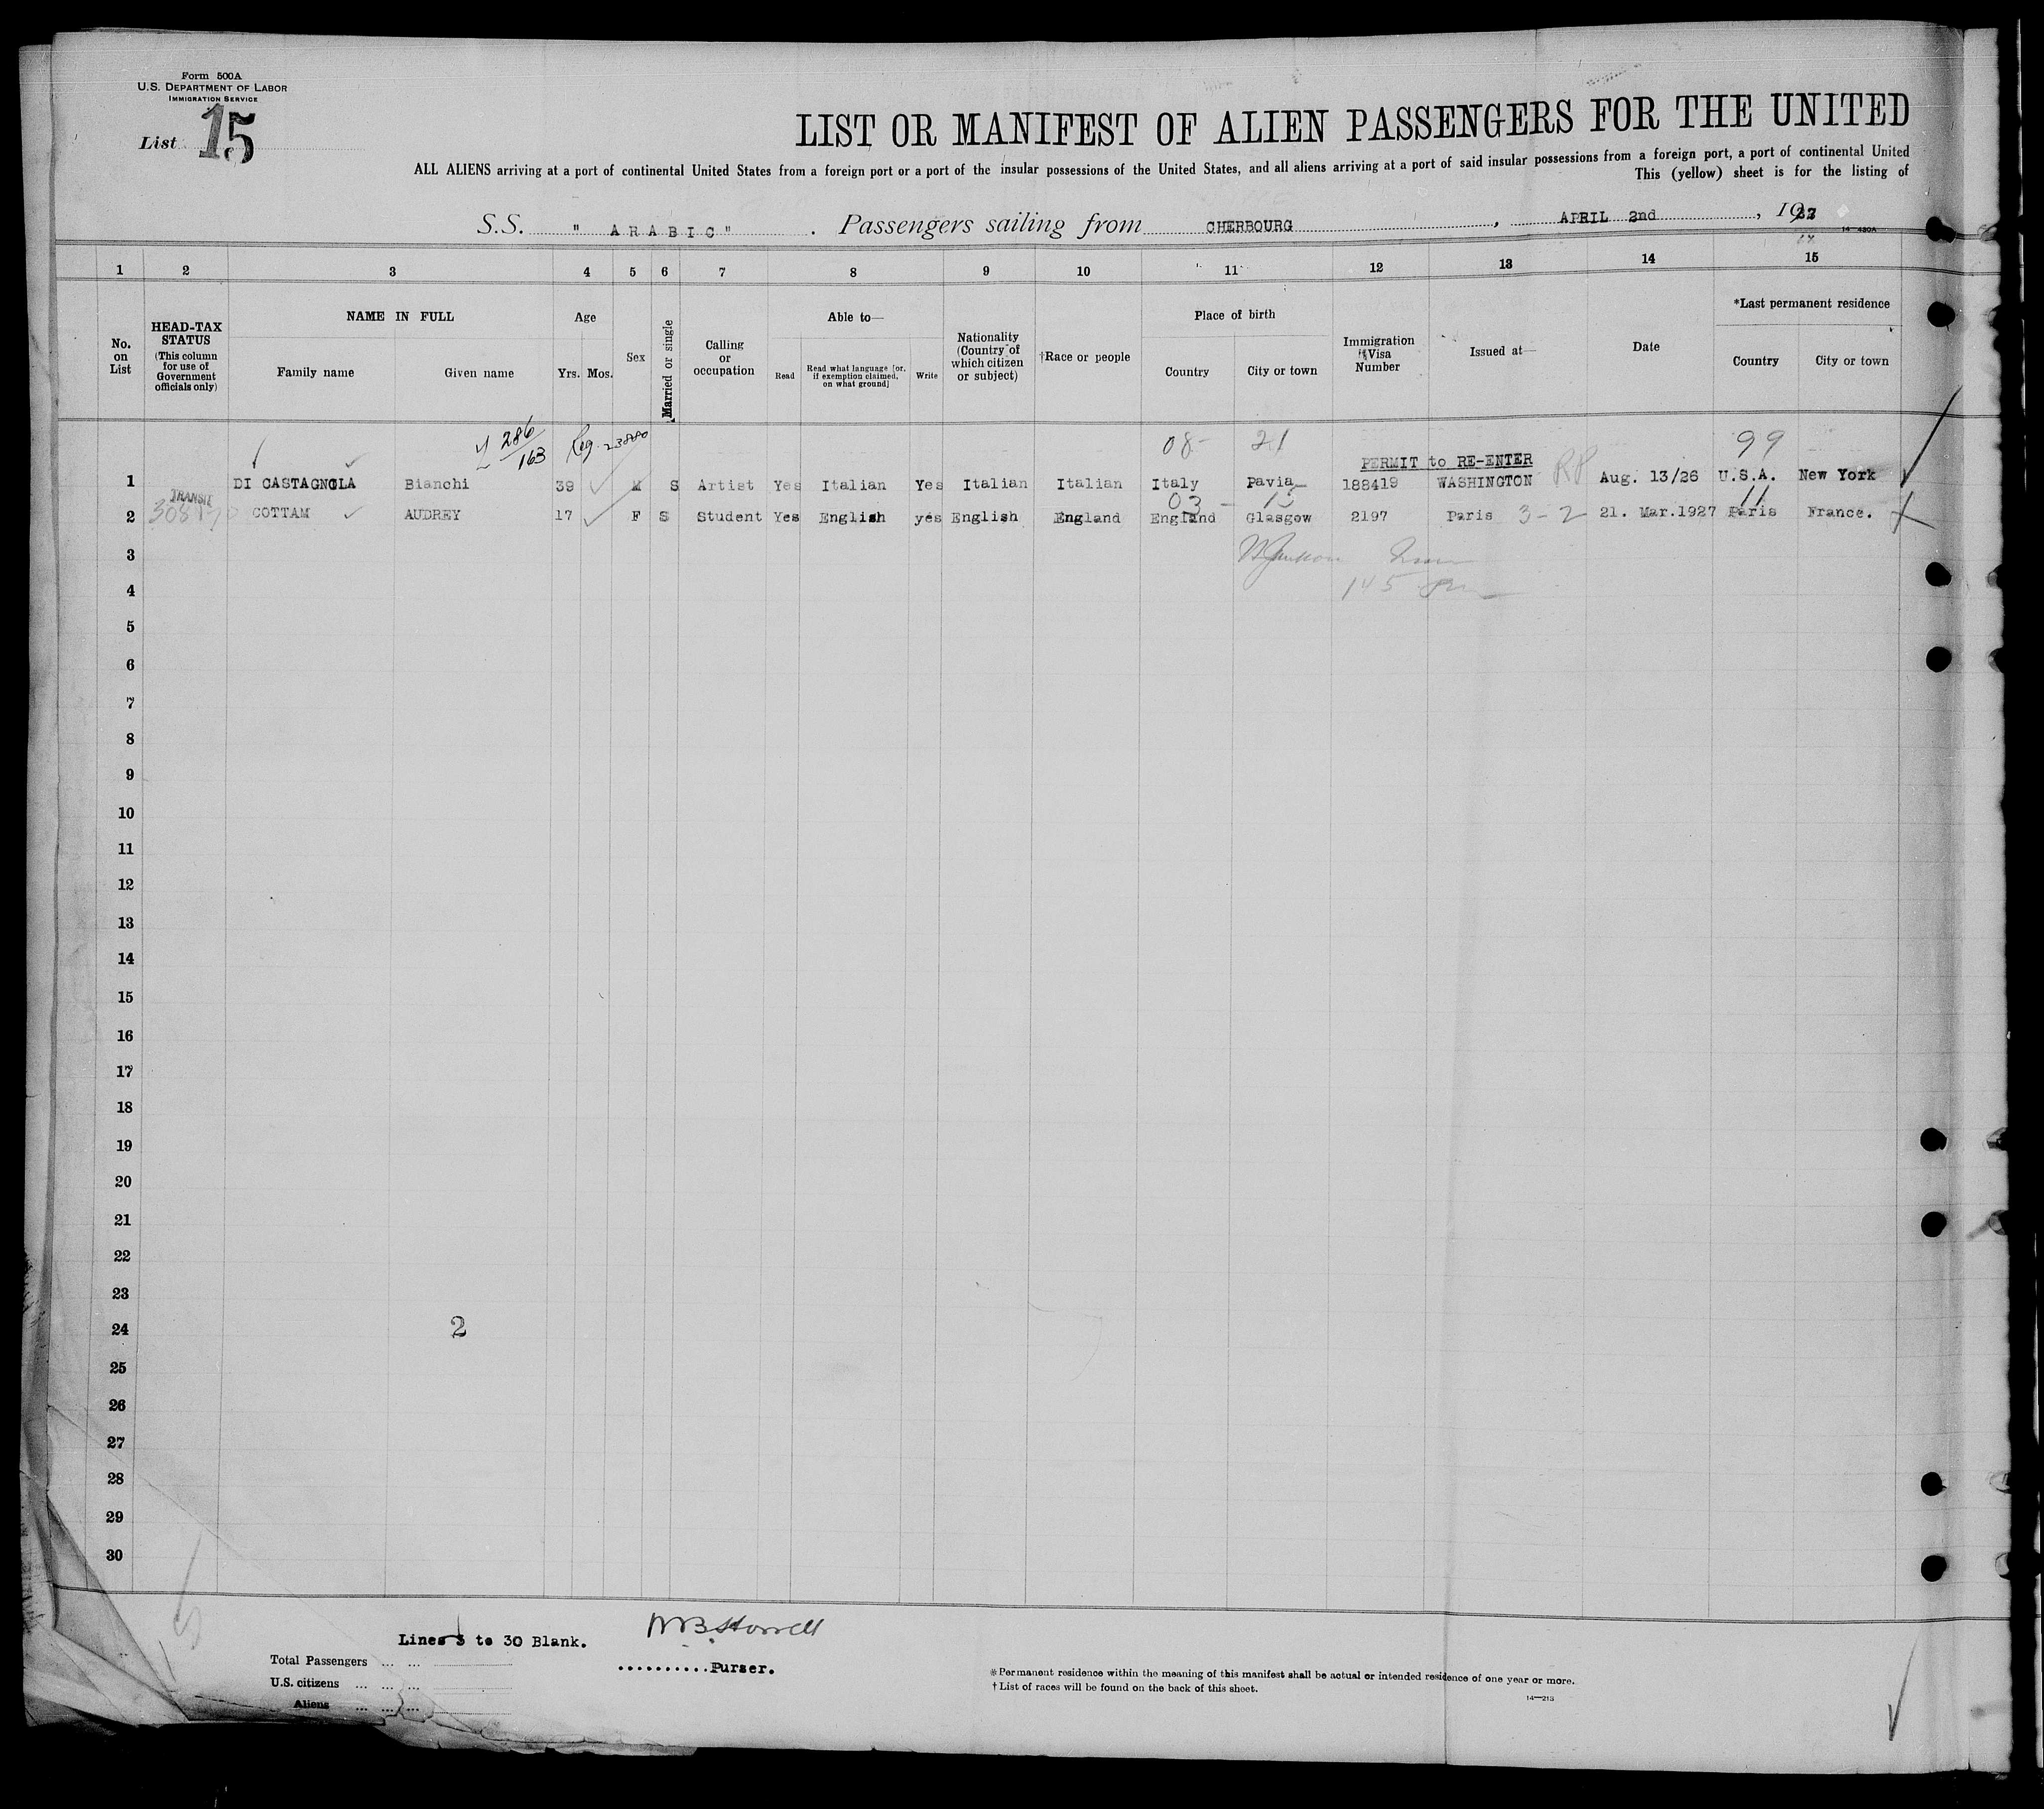 Form 500A
U.S. DEPARTMENT OF LABOR
IMMIGRATION SERVICE
List 15
LIST OR MANIFEST OF ALIEN PASSENGERS FOR THE UNITED
ALL ALIENS arriving at a port of continental United States from a foreign port or a port of the insular possessions of the United States, and all aliens arriving at a port of said insular possessions from a foreign port, a port of continental United
This (yellow) sheet is for the listing of
S.S. " ARABIC" . Passengers sailing from CHERBOURG, APRIL 2nd, 1927
14-480A
1 2 3 4 5 6 7 8 9 10 11 12 13 14 15
No. on List
HEAD-TAX STATUS
(This column for use of Government officials only)
NAME IN FULL
Family name Given name
Age
Yrs. Mos.
Sex
Married or single
Calling or occupation
Able to—
Read
Read what language [or, if exemption claimed, on what ground]
Write
Nationality (Country of which citizen or subject)
†Race or people
Place of birth
Country City or town
Immigration Visa Number
Issued at—
Date
*Last permanent residence
Country City or town
286/163 Reg. 08- 21 99
PERMIT to RE-ENTER
1 DI CASTAGNOLA Bianchi 39 M S Artist Yes Italian Yes Italian Italian Italy Pavia 188419 WASHINGTON RP Aug. 13/26 U.S.A. New York
TRANSIT 03 - 15 11
2 COTTAM AUDREY 17 F S Student Yes English yes English England England Glasgow 2197 Paris 3-2 21. Mar.1927 Paris France.
3
4 145
5
6
7
8
9
10
11
12
13
14
15
16
17
18
19
20
21
22
23
24 2
25
26
27
28
29
30
Lines 3 to 30 Blank.
Total Passengers ... ...
U.S. citizens ... ... ...
Aliens ... ... ...
..........Purser.
*Permanent residence within the meaning of this manifest shall be actual or intended residence of one year or more.
†List of races will be found on the back of this sheet.
14-213